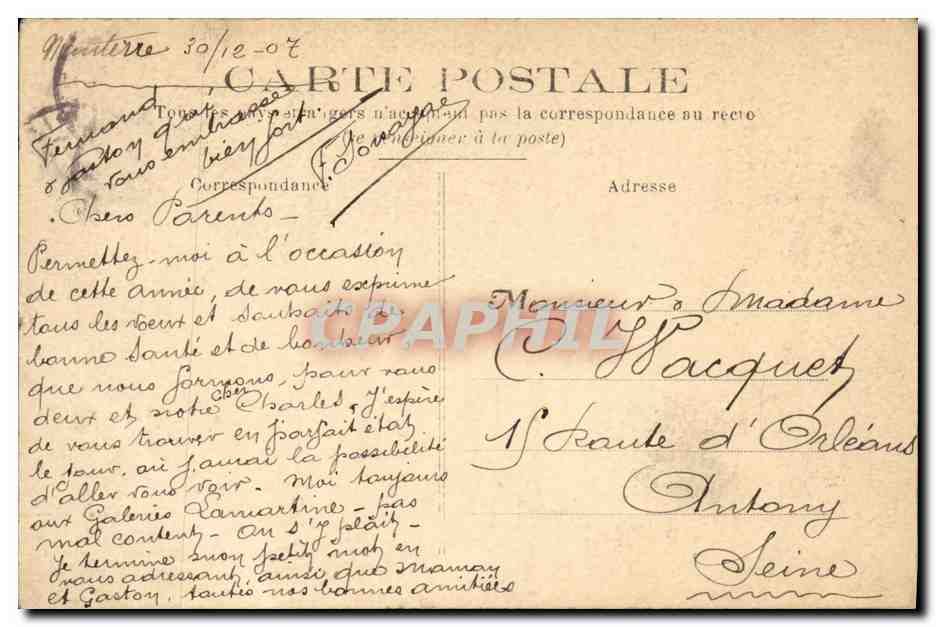 Nanterre 30/12-07
CARTE POSTALE
Tous les pays étrangers n'acceptent pas la correspondance au recto
(Se renseigner à la poste)
Fernand
& Gaston qui
vous embrasse
bien fort.
F. Sauvage
Correspondance
Adresse
Chers Parents -
Permettez-moi à l'occasion
de cette année, de vous exprimer
tous les voeux et souhaits de
bonne Santé et de bonheur,
que nous formons, pour vous
deux et notre cher Charles, J'espère
de vous trouver en parfait état
le jour où j'aurai la possibilité
d'aller vous voir. Moi toujours
aux Galeries Lamartine - pas
mal content - On s'y plaît -
Je termine mon petit mot en
vous adressant, ainsi que Maman
et Gaston, toutes nos bonnes amitiés
Monsieur & Madame
C. Wacquet
15 Route d'Orléans
Antony
Seine
CPAPHIL